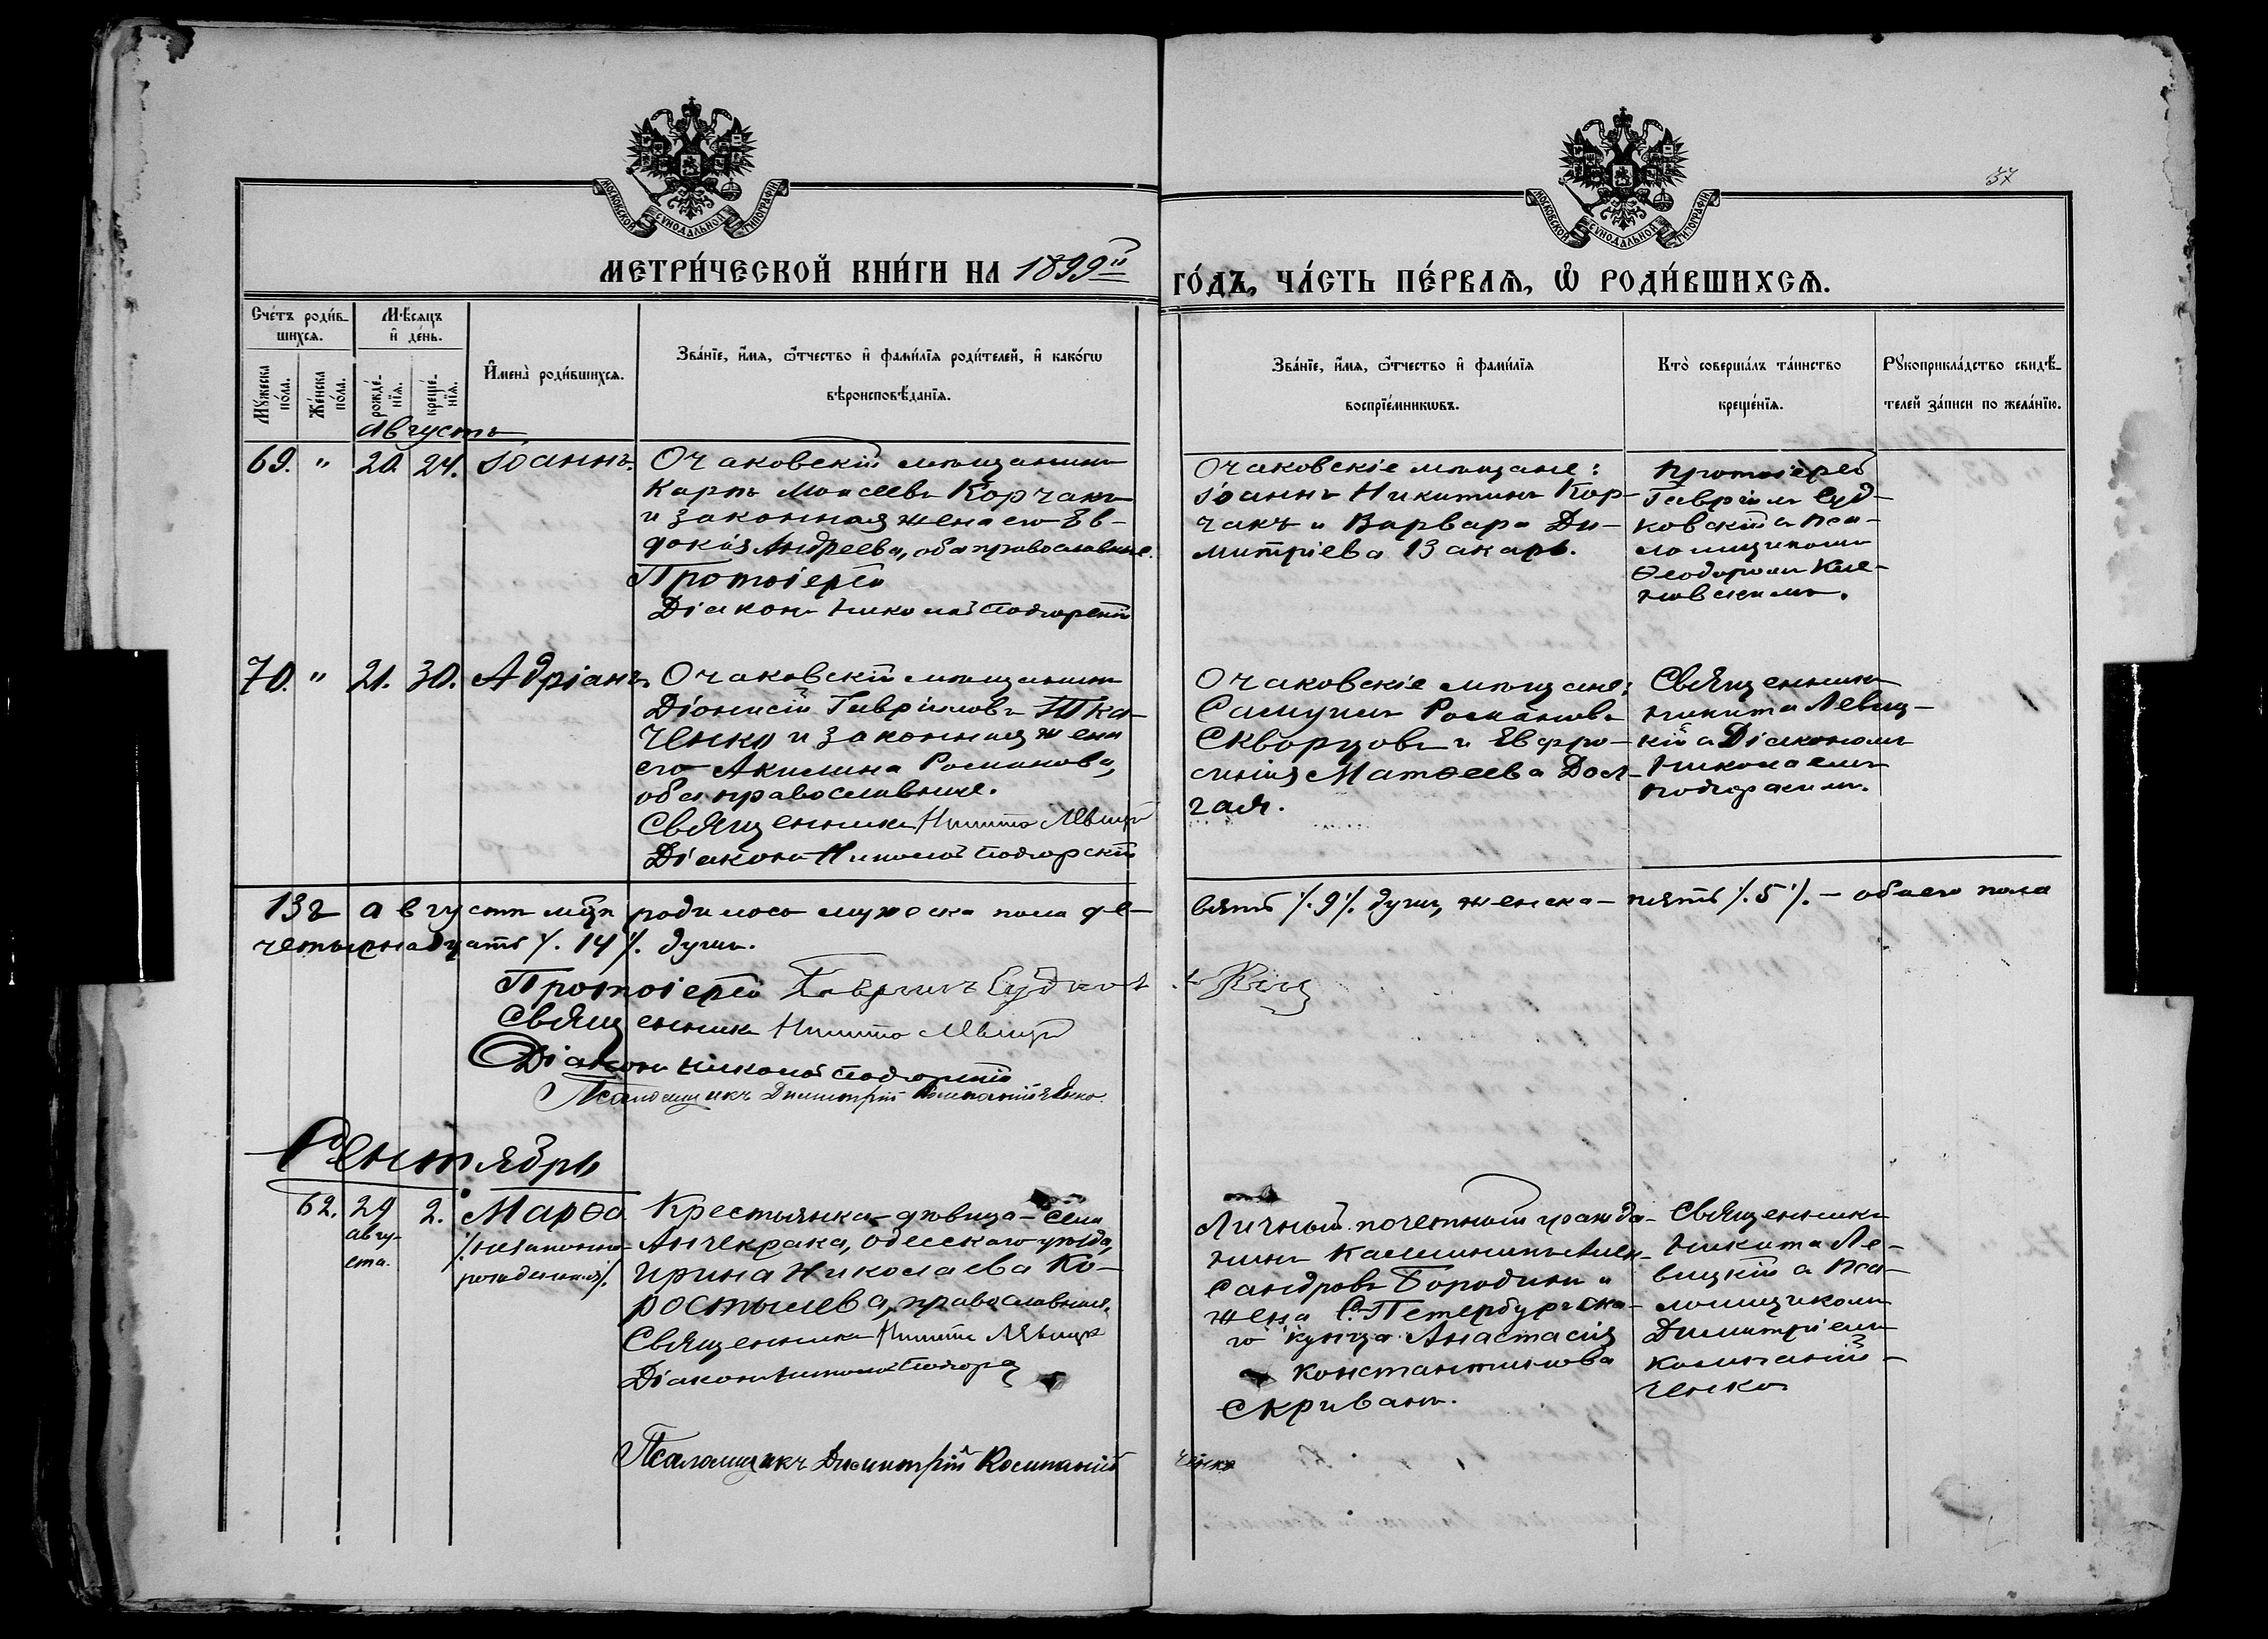 37
МОСКОВСКОЙ СѴНОДАЛЬНОЙ ТИПОГРАФІИ
МОСКОВСКОЙ СѴНОДАЛЬНОЙ ТИПОГРАФІИ
МЕТРИ́ЧЕСКОЙ КНИ́ГИ НА 1899й ГО́ДЪ, ЧА́СТЬ ПЕ́РВАѦ, Ѡ РОДИ́ВШИХСѦ.
Сче́тъ роди́в-
шихся.
Мꙋ́жеска
по́ла.
Же́нска
по́ла.
Мѣ́сяцъ
и҆ де́нь.
рожде́-
нїя.
креще́-
нїя.
И҆мена̀ роди́вшихся.
Зва́нїе, и҆́мя, ѻ҆́тчество и҆ фами́лїя роди́телей, и҆ како́гѡ
вѣроисповѣ́данїя.
Зва́нїе, и҆́мя, ѻ҆́тчество и҆ фами́лїя
воспрїе́мникѡвъ.
Кто̀ соверша́лъ та́инство
креще́нїя.
Рꙋкоприкла́дство свидѣ́-
телей за́писи по жела́нїю.
Августъ
69. " 20. 24. Іоаннъ.
Очаковскій мѣщанинъ
Карпъ Моисеевъ Корчакъ
и законная жена его Ев-
докія Андреева, оба православные.
Протоіерей
Діаконъ Николай Подгорскій
Очаковскіе мѣщане:
Іоаннъ Никитинъ Кор-
чакъ и Варвара Ди-
митріева
Протоіерей
Гавріилъ Суд-
ковскій съ пса-
ломщикомъ
Ѳеодоромъ
70. " 21. 30. Адріанъ.
Очаковскій мѣщанинъ
Діонисій Гавріиловъ Тка-
ченко и законная жена
его Акилина Романова,
оба православные.
Священникъ Никита Левицкій
Діаконъ Николай Подгорскій
Очаковскіе мѣщане:
Самуилъ Романовъ
Скворцовъ и Евфро-
синія Матѳеева Дол-
гая.
Священникъ
Никита Левиц-
кій съ Діакономъ
Николаемъ
Подгорскимъ.
августѣ мѣсяцѣ родилось мужеска пола де- вять /. 9 /. душъ, женска - пять /. 5 /. - обоего пола
четырнадцать /. 14 /. душъ.
Протоіерей Гавріилъ Судковскій
Священникъ Никита Левицкій
Діаконъ Николай Подгорскій
Псаломщикъ Димитрій Компанійченко.
Сентябрь
62. 29 авгу- ста. 2. Марѳа
/незаконно-
рожденная/.
Крестьянка-дѣвица - села
Анчекрака, Одесскаго уѣзда,
Ирина Николаева Ко-
ростылева, православная.
Священникъ Никита Левицкій
Діаконъ Николай Подгорск
Псаломщикъ Димитрій Компаній ченко
Личный почетный гражда-
нинъ Алек-
сандровъ Бородинъ и
жена С. Петербургска-
го купца Анастасія
Константинова
Скривань.
Священникъ
Никита Ле-
вицкій съ пса-
ломщикомъ
Димитріемъ
Компаній-
ченко